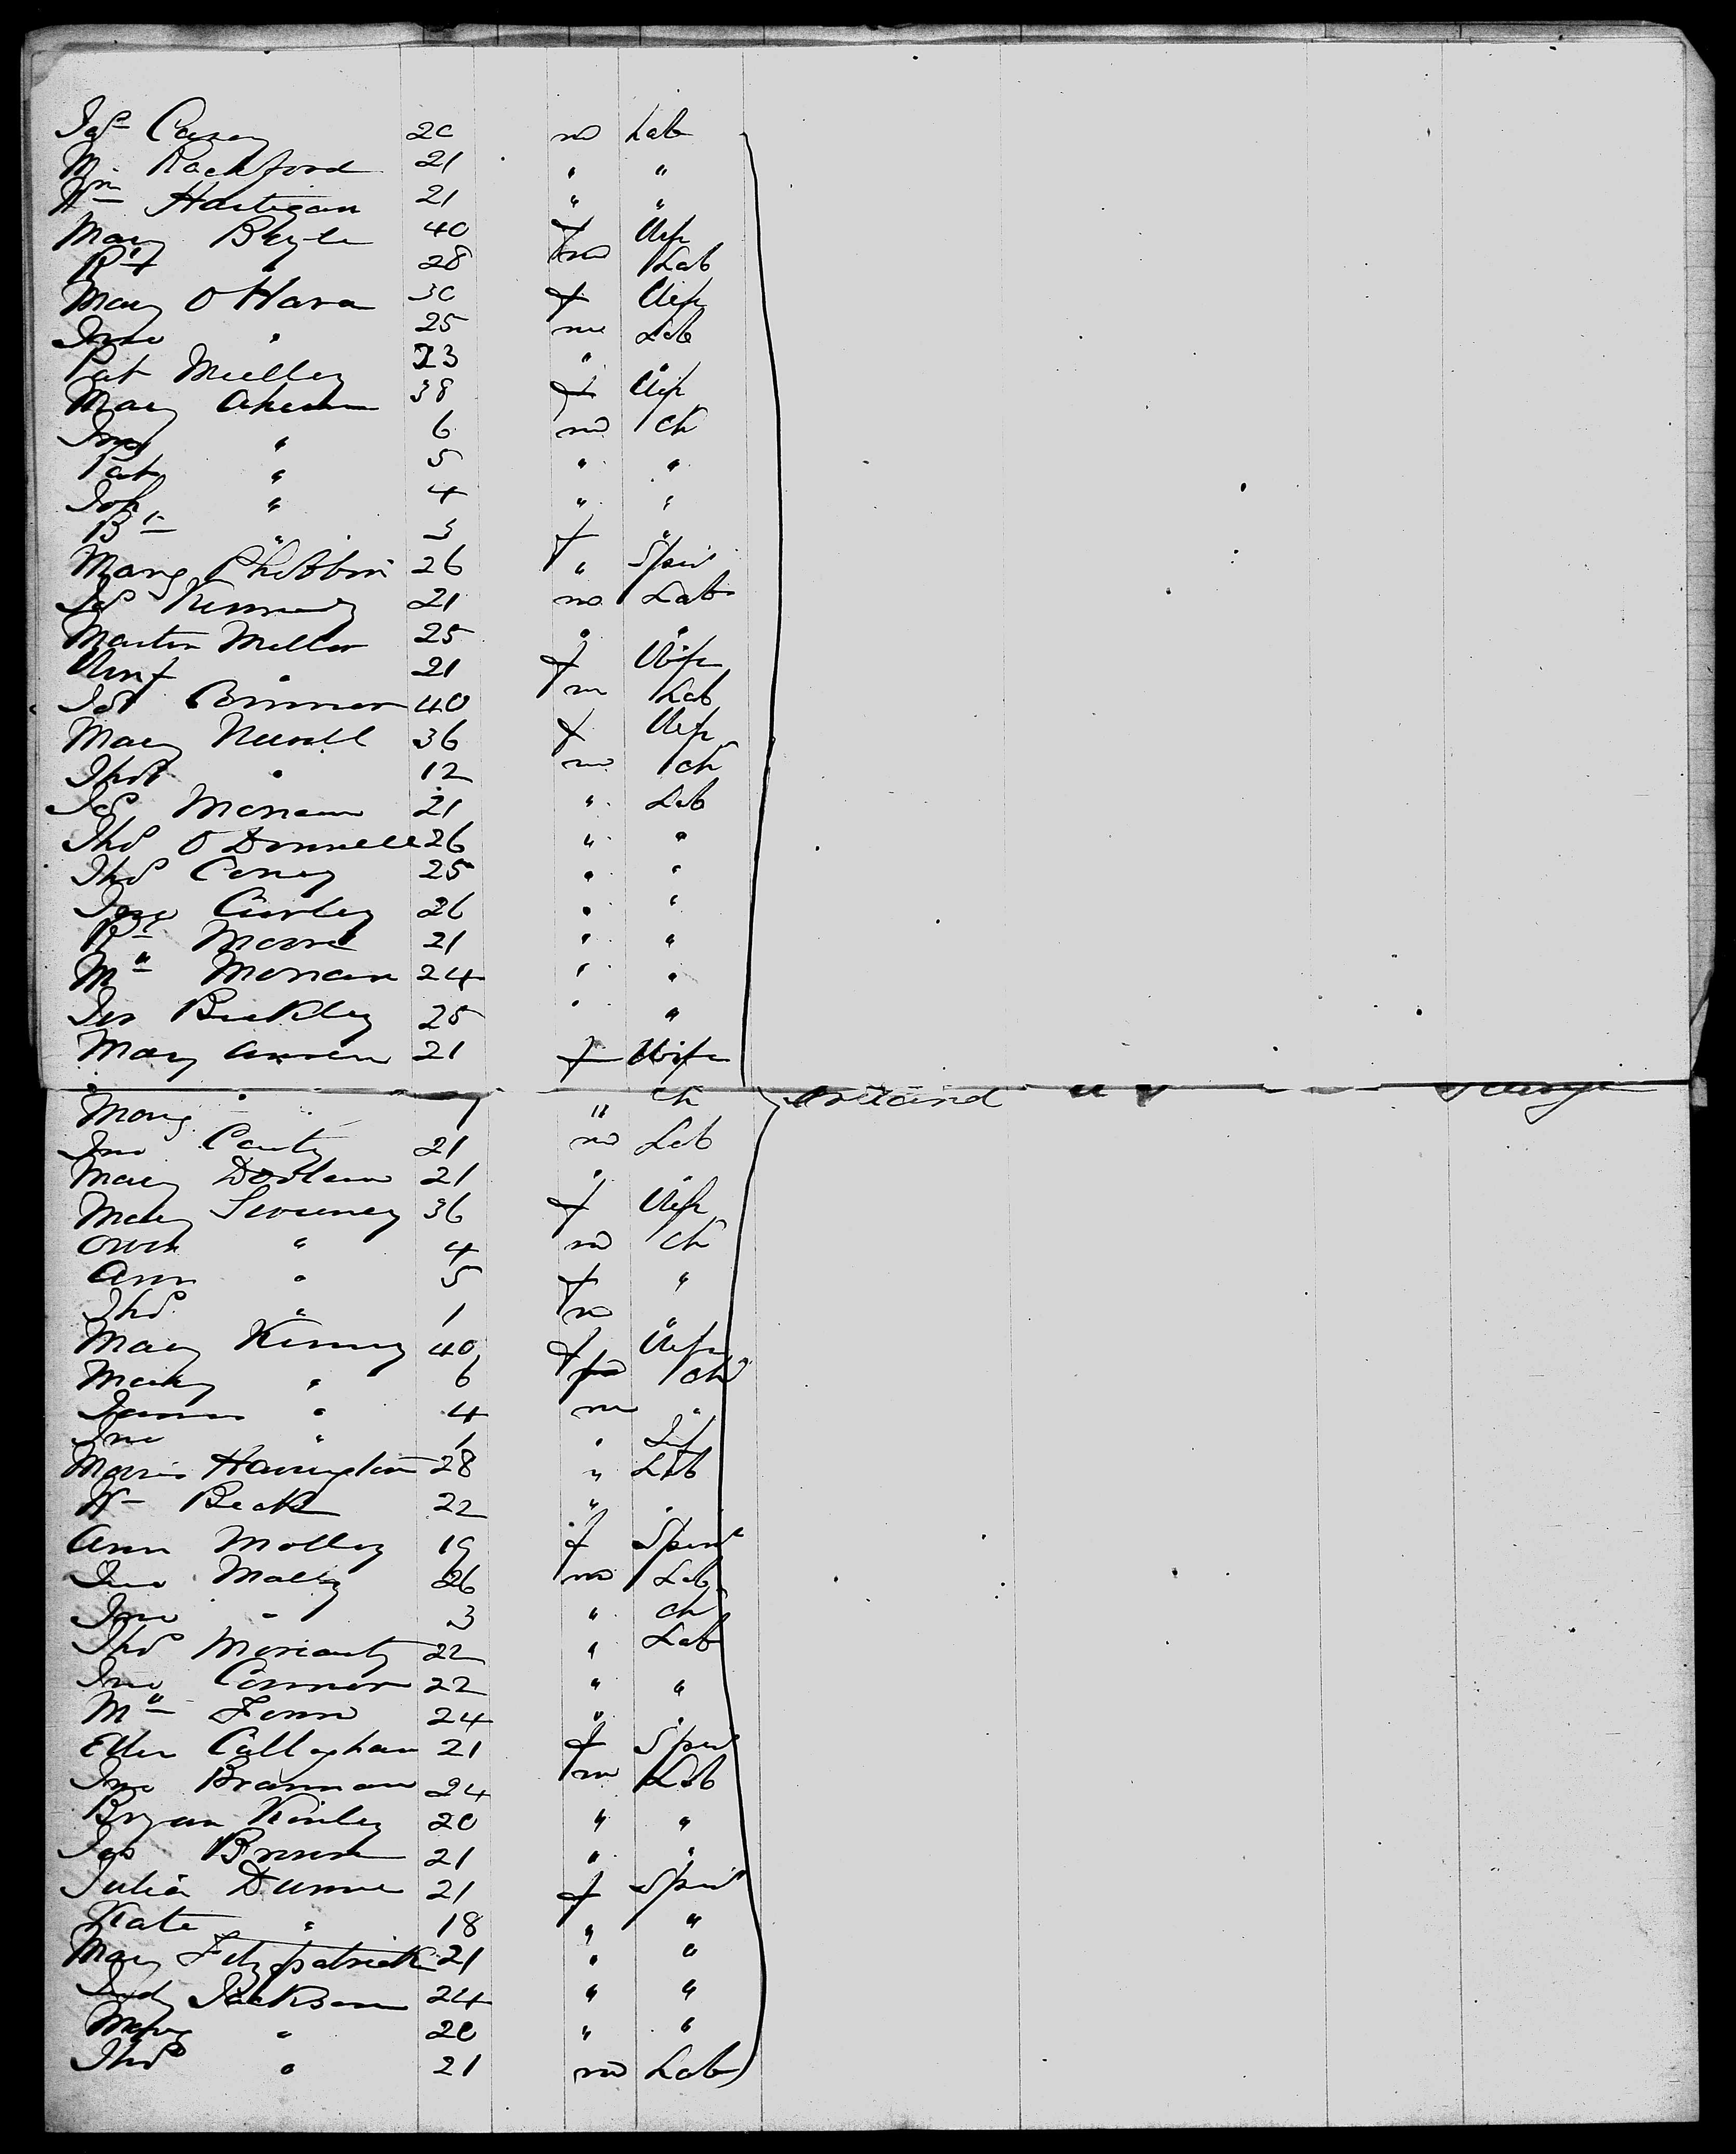 Jas Casey 20 m Lab
M. Rackford 21 " "
Wm Hartigan 21 " "
Mary Boyle 40 f Wife
" 28 m Lab
Mary O Hara 30 f Wife
Jno " 25 m Lab
Pat Mulley 23 " "
Mary Ahern 38 f Wife
Jno " 6 m Ch
Pat " 5 " "
Joh " 4 " "
" 3 f "
Marg Phibbin 26 " Spin
Jas Kennedy 21 m Lab
Martin Miller 25 " "
" 21 f Wife
Jas Connor 40 m Lab
Mary Newell 36 f Wife
Thos " 12 m Ch
Jas Moran 21 " Lab
Thos O Donnell 26 " "
Thos Coney 25 " "
Jno Curley 26 " "
Moore 21 " "
Ml Moran 24 " "
Jer Buckley 25 " "
Mary 21 f Wife
Marg " 1 " Ch
Jno Canty 21 m Lab
Mary 21 " "
Mary Sweeney 36 f Wife
Owen " 4 m Ch
Ann " 5 f "
Thos " 1 m "
Mary Kenny 40 f Wife
" 6 Ch
James " 4 m "
Jno " 1 " Inf
Morris Harrington 28 " Lab
Wm Beck 22 " "
Ann Molloy 19 f Spin
Jno 26 m Lab
Jno " 3 " Ch
Thos Moriarty 22 " Lab
Jno Connor 22 " "
Ml 24 " "
Ellen Callaghan 21 f Spin
Jno Brannan 24 m Lab
Bryan Kinley 20 " "
Jas Brown 21 " "
Julia Dunne 21 f Spin
Kate " 18 " "
Mary Fitzpatrick 21 " "
Judy Jackson 24 " "
Marg " 20 " "
Thos " 21 m Lab